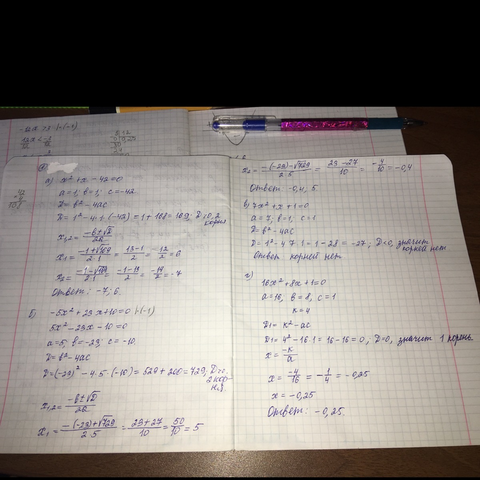 а) x² + x - 42 = 0
a = 1, b = 1, c = -42
D = b² - 4ac
D = 1² - 4·1·(-42) = 1 + 168 = 169, D>0, 2 корня
x₁,₂ = (-b ± √D)/2a
x₁ = (-1+√169)/(2·1) = (13-1)/2 = 12/2 = 6
x₂ = (-1-√169)/(2·1) = (-1-13)/2 = -14/2 = -7
Ответ: -7; 6.
б) -5x² + 23x + 10 = 0 |·(-1)
5x² - 23x - 10 = 0
a = 5, b = -23, c = -10.
D = b² - 4ac
D = (-23)² - 4·5·(-10) = 529 + 200 = 729, D>0,
x₁,₂ = (-b ± √D)/2a
x₁ = (-(-23)+√729)/(2·5) = (23+27)/10 = 50/10 = 5
x₂ = (-(-23)-√729)/(2·5) = (23-27)/10 = -4/10 = -0,4
Ответ: -0,4; 5
в) 7x² + x + 1 = 0
a = 7, b = 1, c = 1
D = b² - 4ac
D = 1² - 4·7·1 = 1 - 28 = -27, D<0, значит корней нет
Ответ: корней нет
г)
16x² + 8x + 1 = 0
a = 16, b = 8, c = 1
k = 4
D1 = k² - ac
D1 = 4² - 16·1 = 16 - 16 = 0, D=0, значит 1 корень.
x = -k/a
x = -4/16 = -1/4 = -0,25
x = -0,25
Ответ: -0,25.